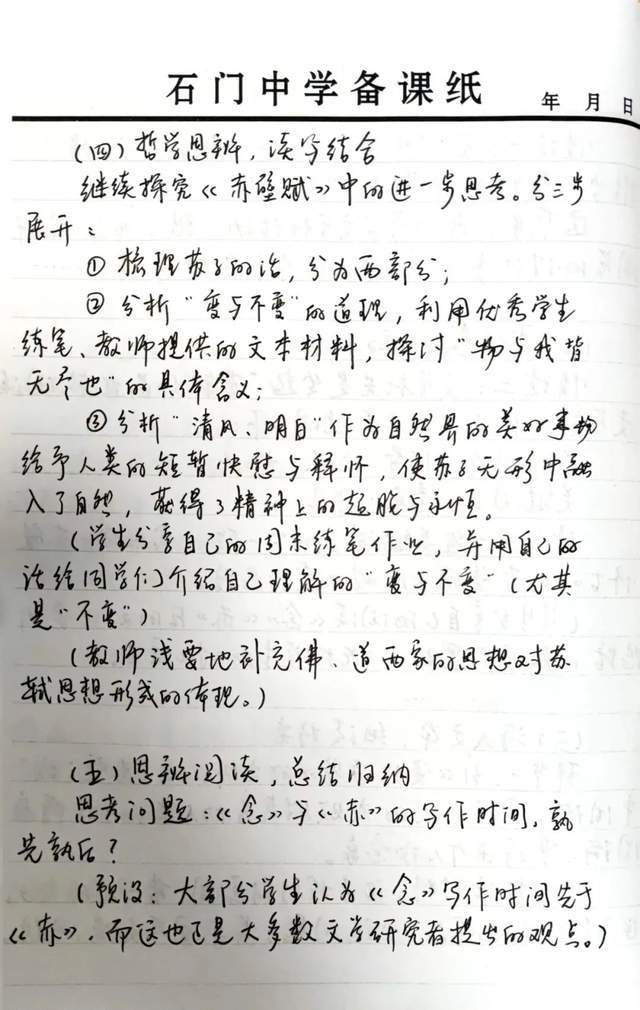 石门中学备课纸
年 月 日
(四)哲学思辨,读写结合
继续探究《赤壁赋》中的进一步思考。分三步
展开:
① 梳理苏子的话,分为两部分;
② 分析"变与不变"的道理,利用优秀学生
练笔、教师提供的文本材料,探讨"物与我皆
无尽也"的具体含义;
③ 分析"清风、明月"作为自然界的美好事物
给予人类的短暂快慰与释怀,使苏子无形中融
入了自然,获得了精神上的超脱与永恒。
(学生分享自己的周末练笔作业,并用自己的
话给同学们介绍自己理解的"变与不变"(尤其
是"不变")
(教师浅要地补充佛、道两家的思想对苏
轼思想形成的体现。)
(五)思辨阅读,总结归纳
思考问题:《念》与《赤》的写作时间,孰
先孰后?
(预设:大部分学生认为《念》写作时间先于
《赤》,而这也正是大多数文学研究者提出的观点。)